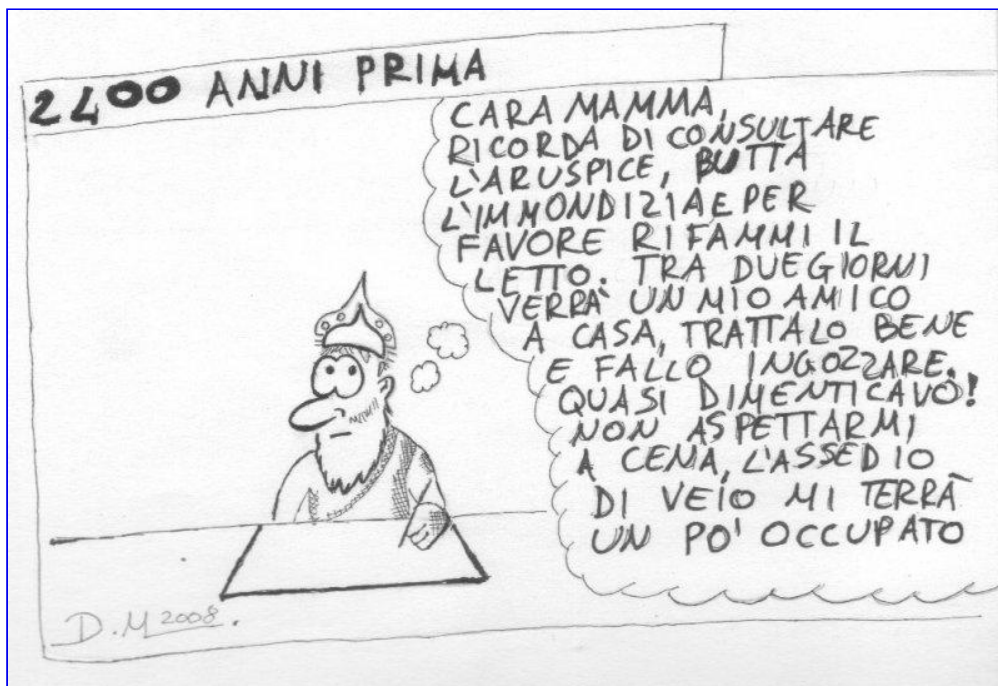 2400 ANNI PRIMA
CARA MAMMA,
RICORDA DI CONSULTARE
L'ARUSPICE, BUTTA
L'IMMONDIZIA E PER
FAVORE RIFAMMI IL
LETTO. TRA DUE GIORNI
VERRÀ UN MIO AMICO
A CASA, TRATTALO BENE
E FALLO INGOZZARE.
QUASI DIMENTICAVO!
NON ASPETTARMI
A CENA, L'ASSEDIO
DI VEIO MI TERRÀ
UN PO' OCCUPATO
D.M 2008.